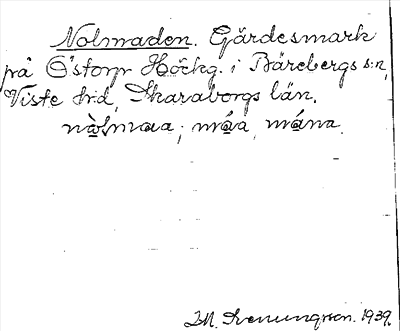 Nolmaden. Gärdesmark
på Östorp Höckg. i Bärebergs s:n,
Viste hrd, Skaraborgs län.
nòlmaa; máa, mána.
I.M. Svenungsson. 1939.